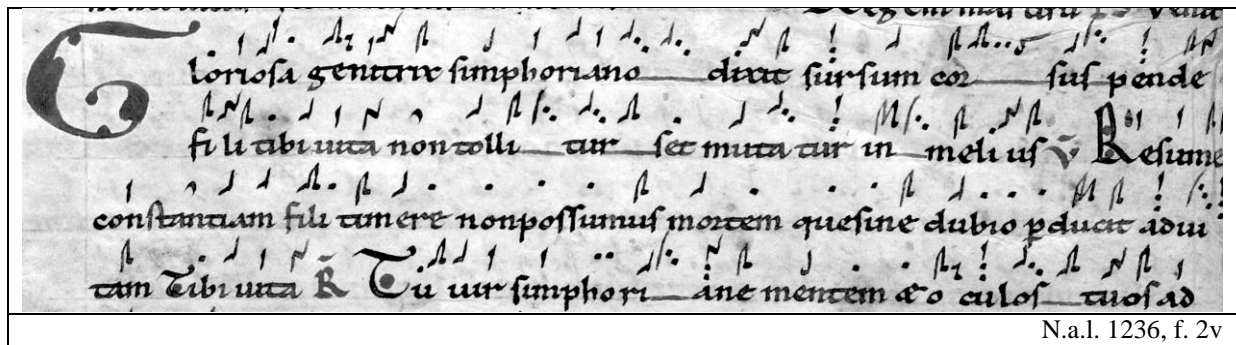 Gloriosa genitrix simphoriano dixit sursum cor suspende
fili tibi uita non tollitur set mutatur in melius v̄ Resume
constantiam fili timere nonpossumus mortem que sine dubio ꝑducit adui
tam Tibi uita R̄ Tu uir simphoriane mentem æ oculos tuos ad
N.a.l. 1236, f. 2v